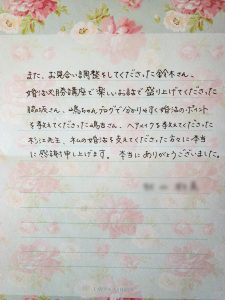 また、お見合い調整をしてくださった鈴木さん、
婚活必勝講座で楽しいお話で盛り上げてくださった
脇坂さん、嶋ちゃんブログで分かりやすく婚活のポイント
を教えてくださった嶋吉さん、ヘアメイクを教えてくださった
先生、私の婚活を支えてくださった方々に本当
に感謝申し上げます。本当にありがとうございました。